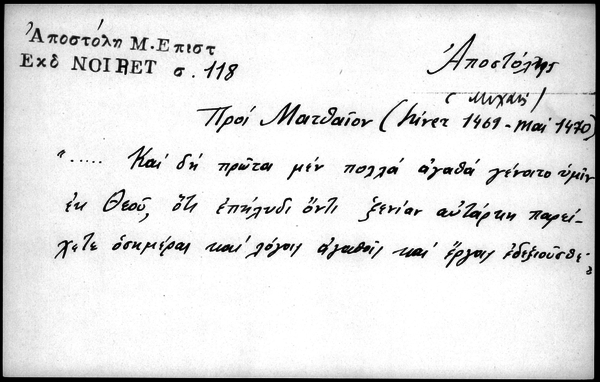 Ἀποστόλη Μ. Επιστ
Εκδ NOIRET σ. 118
Ἀποστόλης
(Μιχαήλ)
Πρός Ματθαῖον (hiver 1469 - mai 1470)
"..... Καί δή πρῶτα μέν πολλά ἀγαθά γένοιτο ὑμῖν
ἐκ Θεοῦ, ὅτι ἐπήλυδι ὄντι ξενίαν αὐτάρκη παρεί-
χετε ὁσημέραι καί λόγοις ἀγαθοῖς καί ἔργοις ἐδεξιοῦσθε·